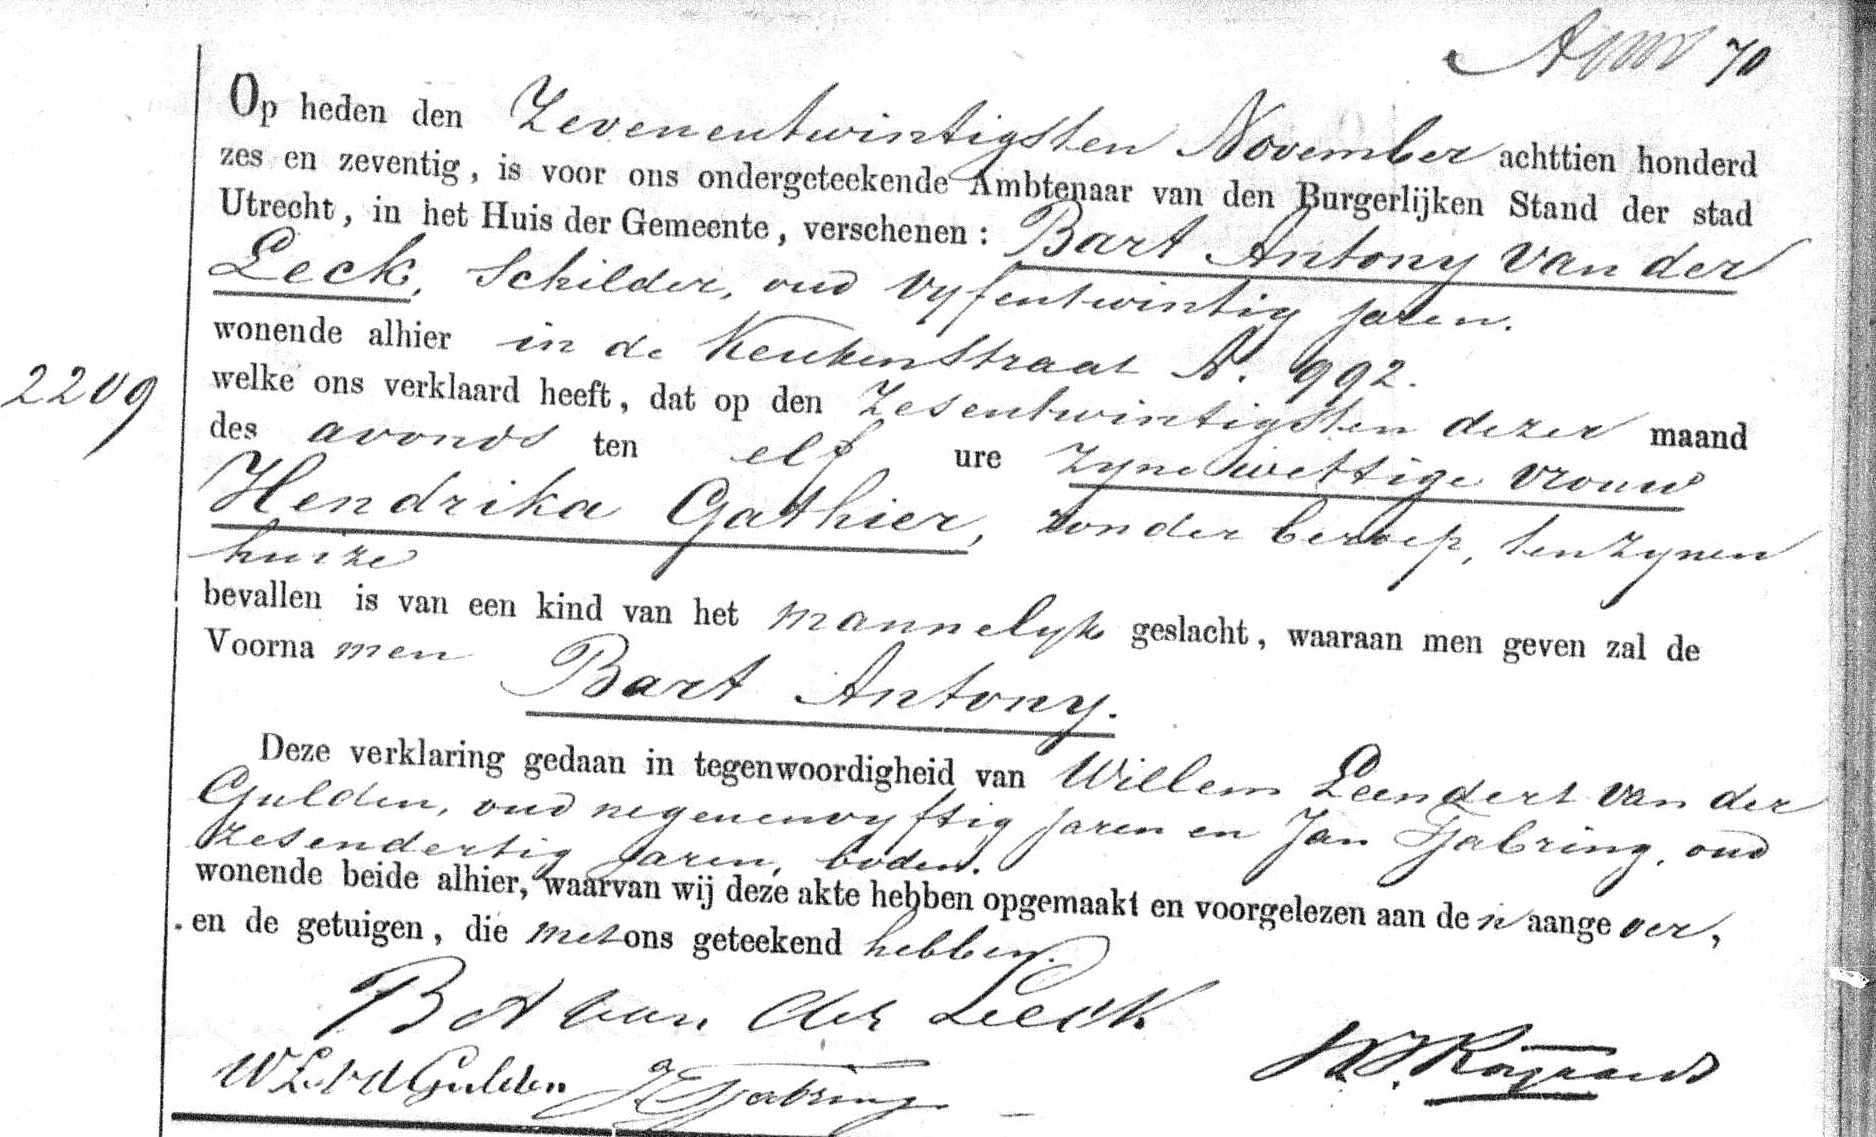 70
Op heden den Zevenentwintigsten November achttien honderd
zes en zeventig, is voor ons ondergeteekende Ambtenaar van den Burgerlijken Stand der stad
Utrecht, in het Huis der Gemeente, verschenen: Bart Antony van der
Leck, Schilder, oud vyfentwintig jaren.
wonende alhier in de Keukenstraat A. 992.
2209
welke ons verklaard heeft, dat op den Zesentwintigsten dezer maand
des avonds ten elf ure zyne wettige vrouw
Hendrika Gathier, zonder beroep, ten zynen
huize
bevallen is van een kind van het mannelyk geslacht, waaraan men geven zal de
Voorna men Bart Antony.
Deze verklaring gedaan in tegenwoordigheid van Willem Leendert van der
Gulden, oud negenenvyftig jaren en Jan Tjabring, oud
zesendertig jaren, boden.
wonende beide alhier, waarvan wij deze akte hebben opgemaakt en voorgelezen aan de n aange ver,
en de getuigen, die met ons geteekend hebben.
B A van der Leck
W L v d Gulden J Tjabring